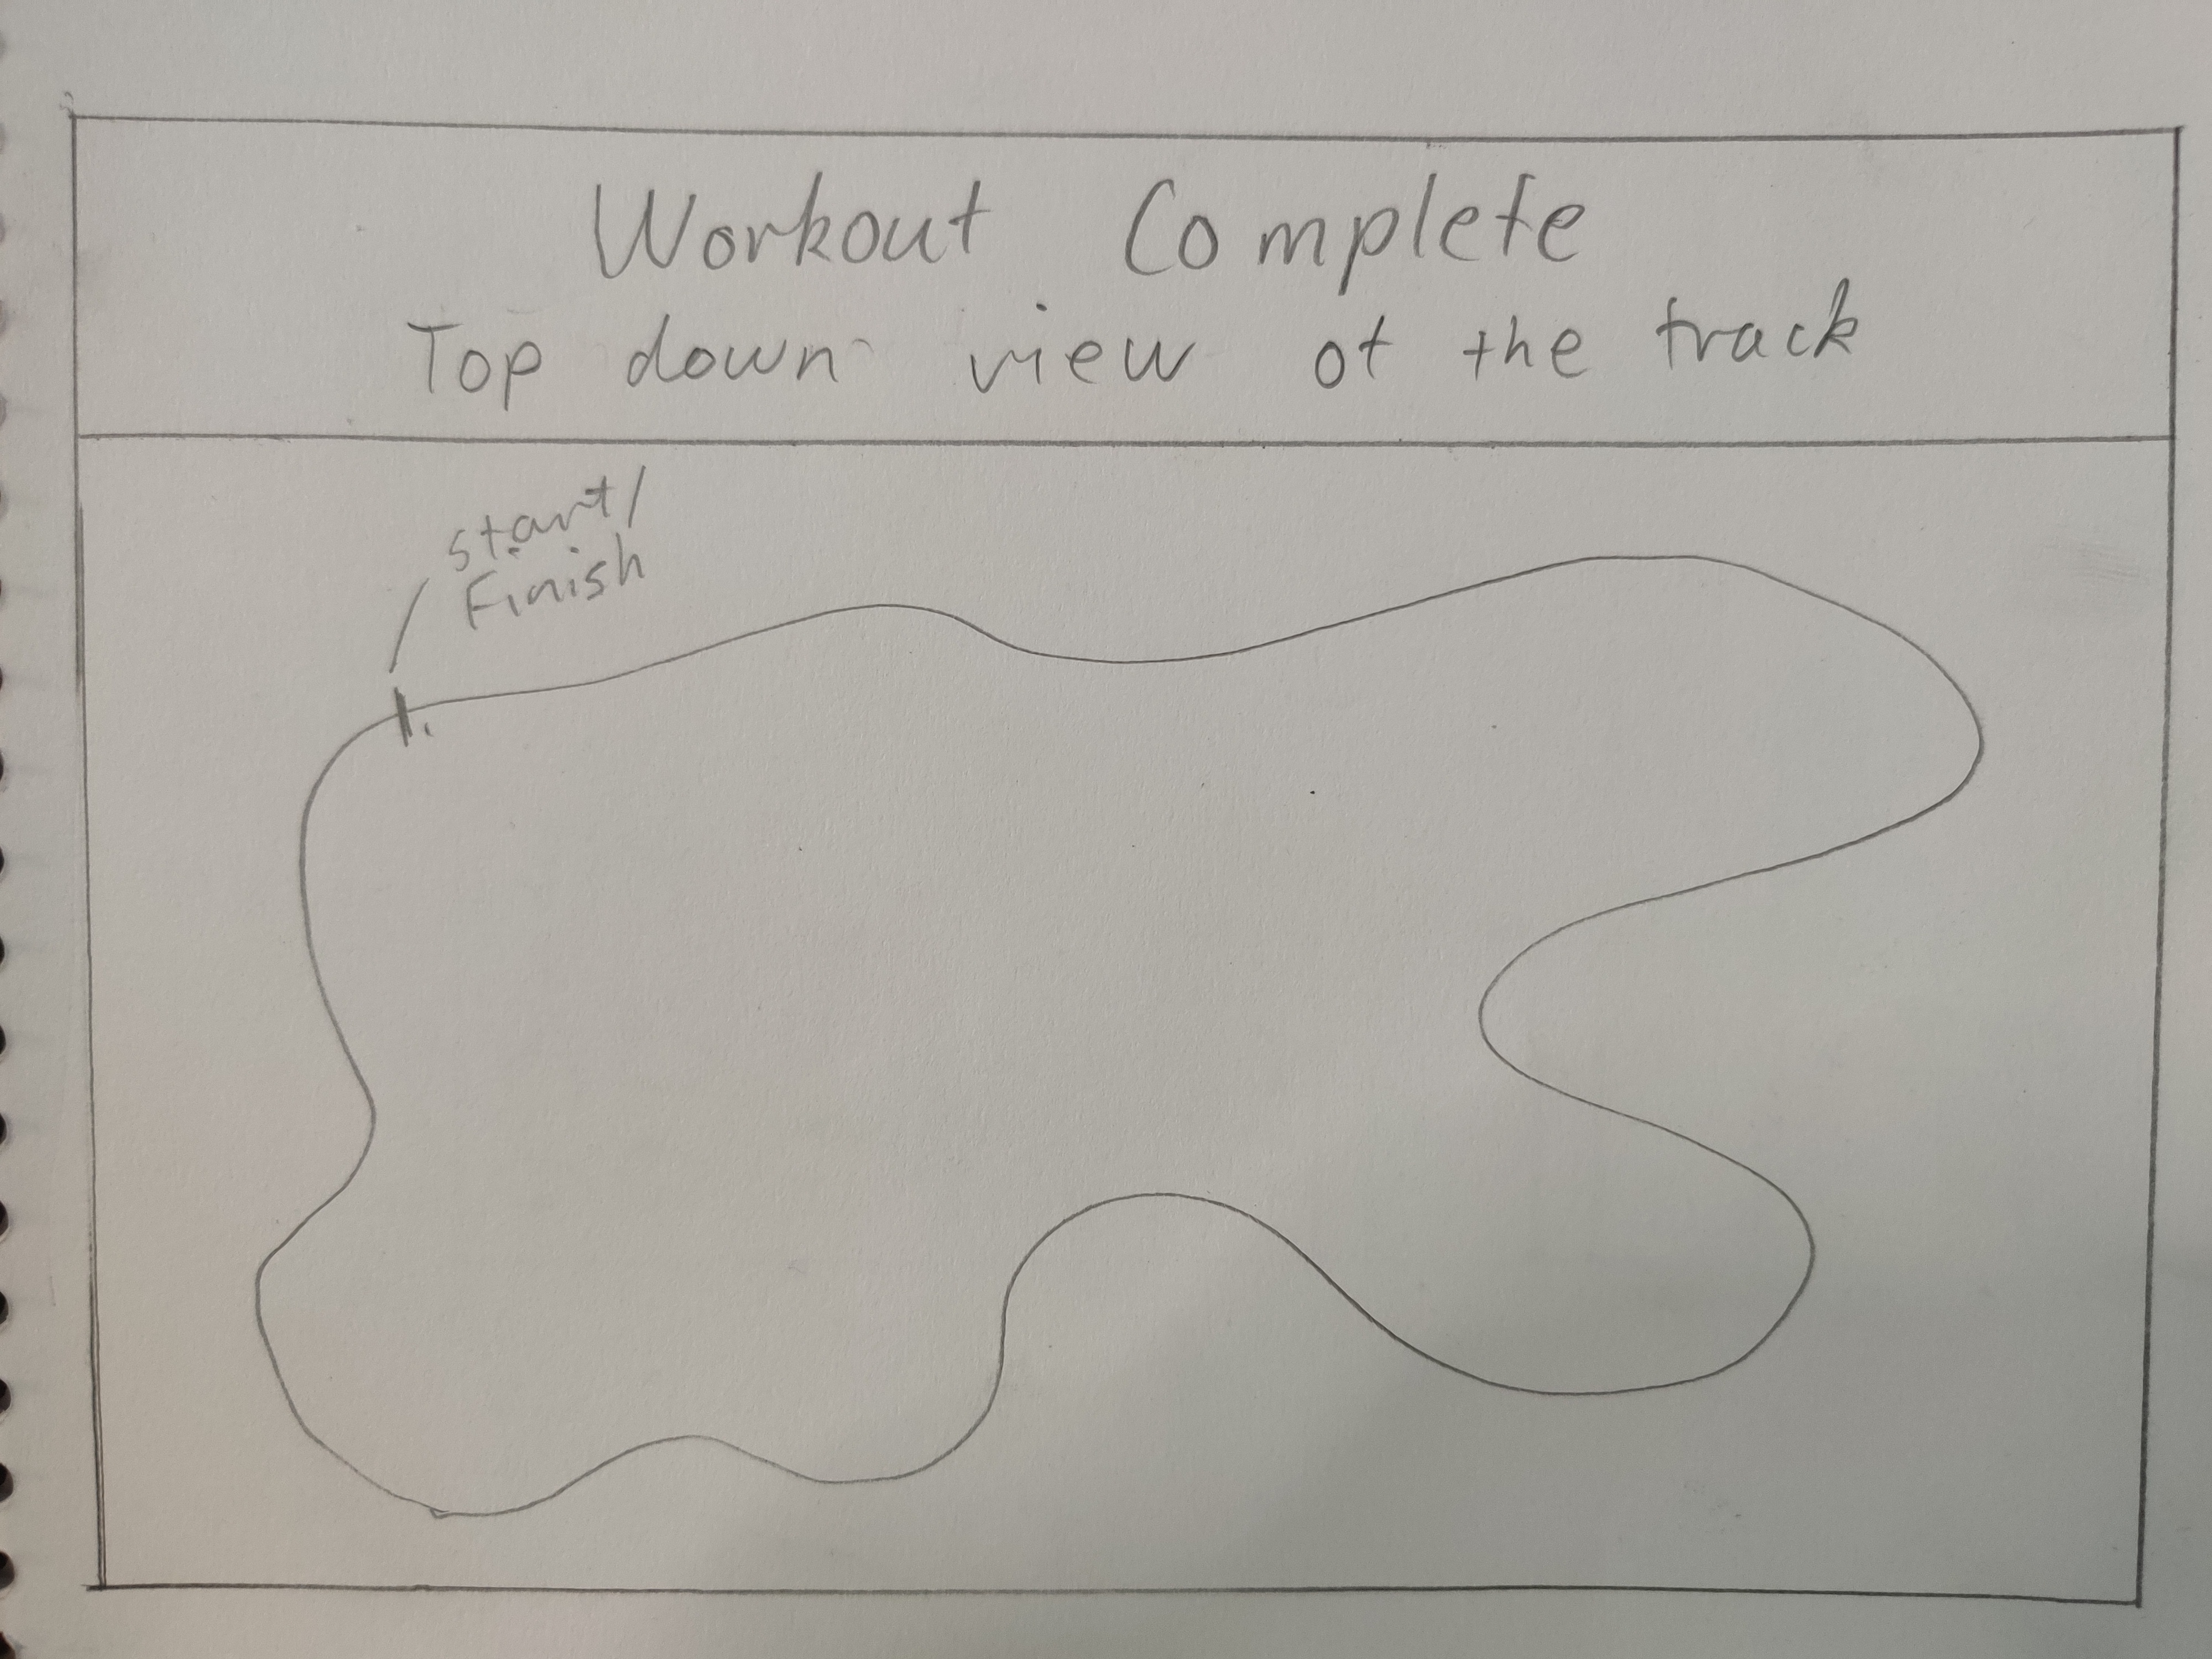 Workout Complete
Top down view of the track
start/
Finish